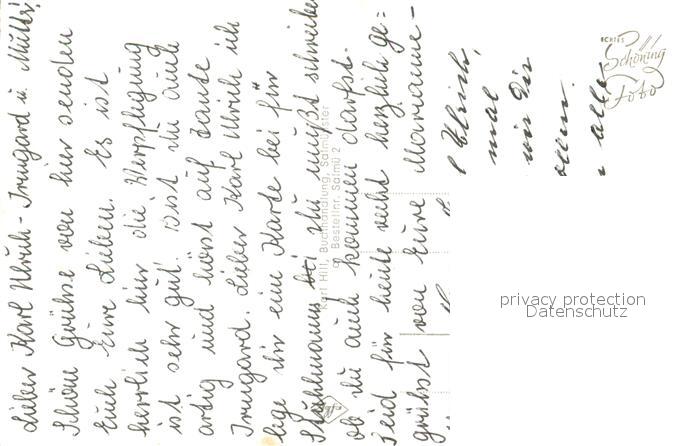 Lieber Karl Ulrich - Irmgard u. Mutti!
Schöne Grüße von hier senden
Euch Eure Lieben. Es ist
herrlich hier die Verpflegung
ist sehr gut. Bist du auch
artig und hörst auf Tante
Irmgard. Lieber Karl Ulrich ich
lege dir ein Karte bei für
Stuhlmanns du mußt schreiben
ob du auch kommen darfst.
Seid für heute recht herzlich ge-
grüßt von Eure Marianne -
Ulrich,
mal
wir Dir
alle
Karl Hill, Buchhandlung, Salmünster
Bestellnr. Salmü 2
Agfa
ECHTES
Schöning
Foto
privacy protection
Datenschutz